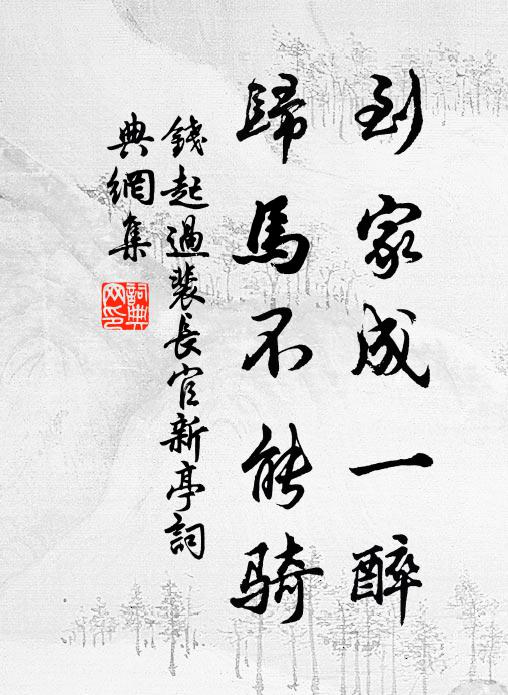 到家成一醉
歸馬不能騎
錢起過裴長官新亭詞
典網集
詞典網印